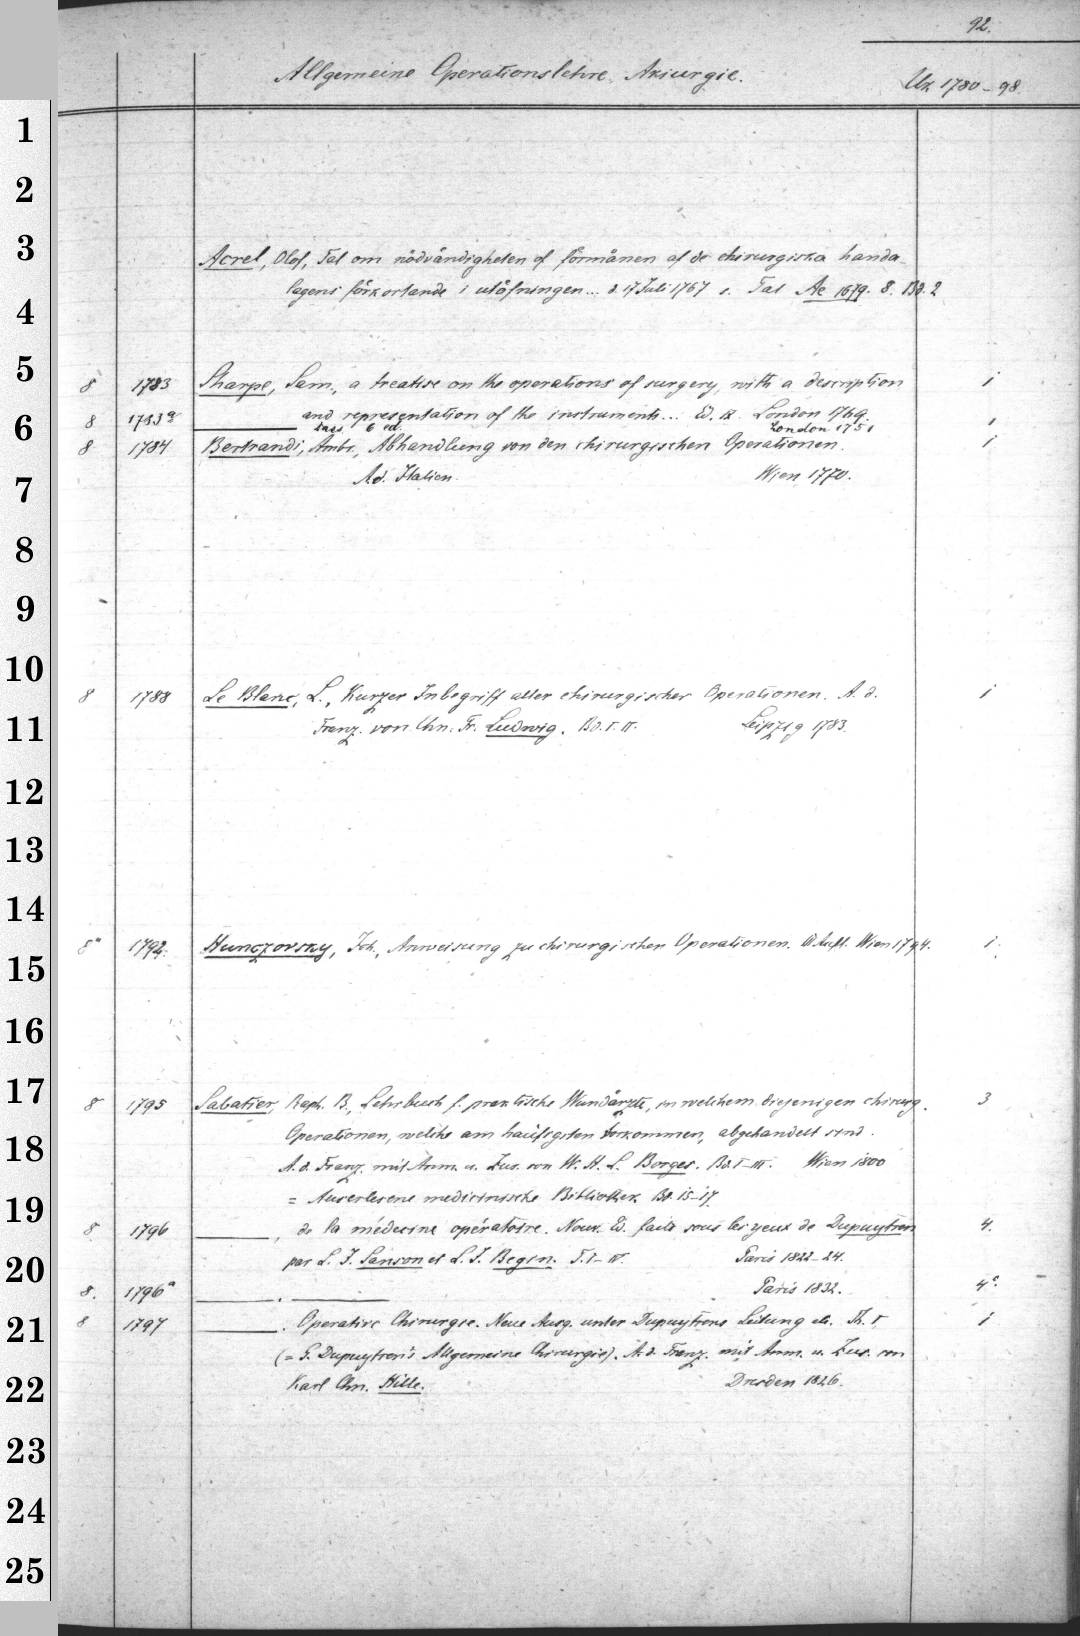 92.
Allgemeine Operationslehre. Akiurgie. Uk 1780-98.
Acrel, Olof, Tal om nödvändigheten of förmånen af de chirurgiska handa
lagens förkortande i utöfningen... d. 17 Juli 1767 s. Tal Ae 1679. 8. Bd. 2
8 1783 Sharpe, Sam., a treatise on the operations of surgery, with a description 1
and representation of the instruments... Ed. London 1769.
8 1783a ______ 6 ed. London 1751 1
8 1784 Bertrandi, Ambr., Abhandlung von den chirurgischen Operationen. 1
A. d. Italien. Wien 1770.
8 1788 Le Blanc, L., Kurzer Inbegriff aller chirurgischer Operationen. A. d. 1
Franz. von Chn. Fr. Ludwig. Bd. I. II. Leipzig 1783.
8° 1792. Hunczovsky, Joh., Anweisung zu chirurgischen Operationen. Aufl. Wien 1794. 1.
8 1795 Sabatier, Raph. B., Lehrbuch f. praktische Wundärzte, in welchem diejenigen chirurg. 3
Operationen, welche am häufigsten vorkommen, abgehandelt sind.
A. d. Franz. mit Anm. u. Zus. von W. H. L. Borges. Bd. I-III. Wien 1800
= Auserlesene medicinische Bibliothek Bd. 15-17
8 1796 ______, de la médecine opératoire. Nouv. Ed. faite sous les yeux de Dupuytren 4.
par L. J. Sanson et L. J. Begin. T. I-IV. Paris 1822-24.
8. 1796a ______. ______ Paris 1832. 4
8 1797 ______. Operative Chirurgie. Neue Ausg. unter Dupuytrens Leitung etc. Th. I, 1
(= G. Dupuytren's Allgemeine Chirurgie). A. d. Franz. mit Anm. u. Zus. von
Karl Chn. Hille. Dresden 1826.
1
2
3
4
5
6
7
8
9
10
11
12
13
14
15
16
17
18
19
20
21
22
23
24
25